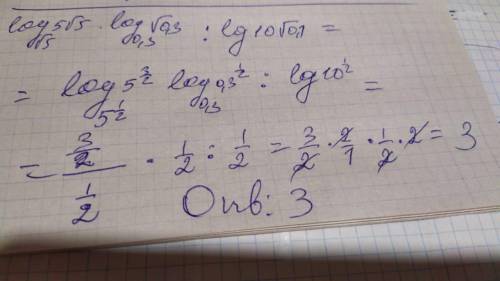 log_{√5} 5√5 · log_{0,3} √0,3 : lg 10√0,1 =
= log_{5^{1/2}} 5^{3/2} log_{0,3} 0,3^{1/2} : lg 10^{1/2} =
= \frac{3/2}{1/2} · 1/2 : 1/2 = 3/2 · 2/1 · 1/2 · 2 = 3
Отв: 3